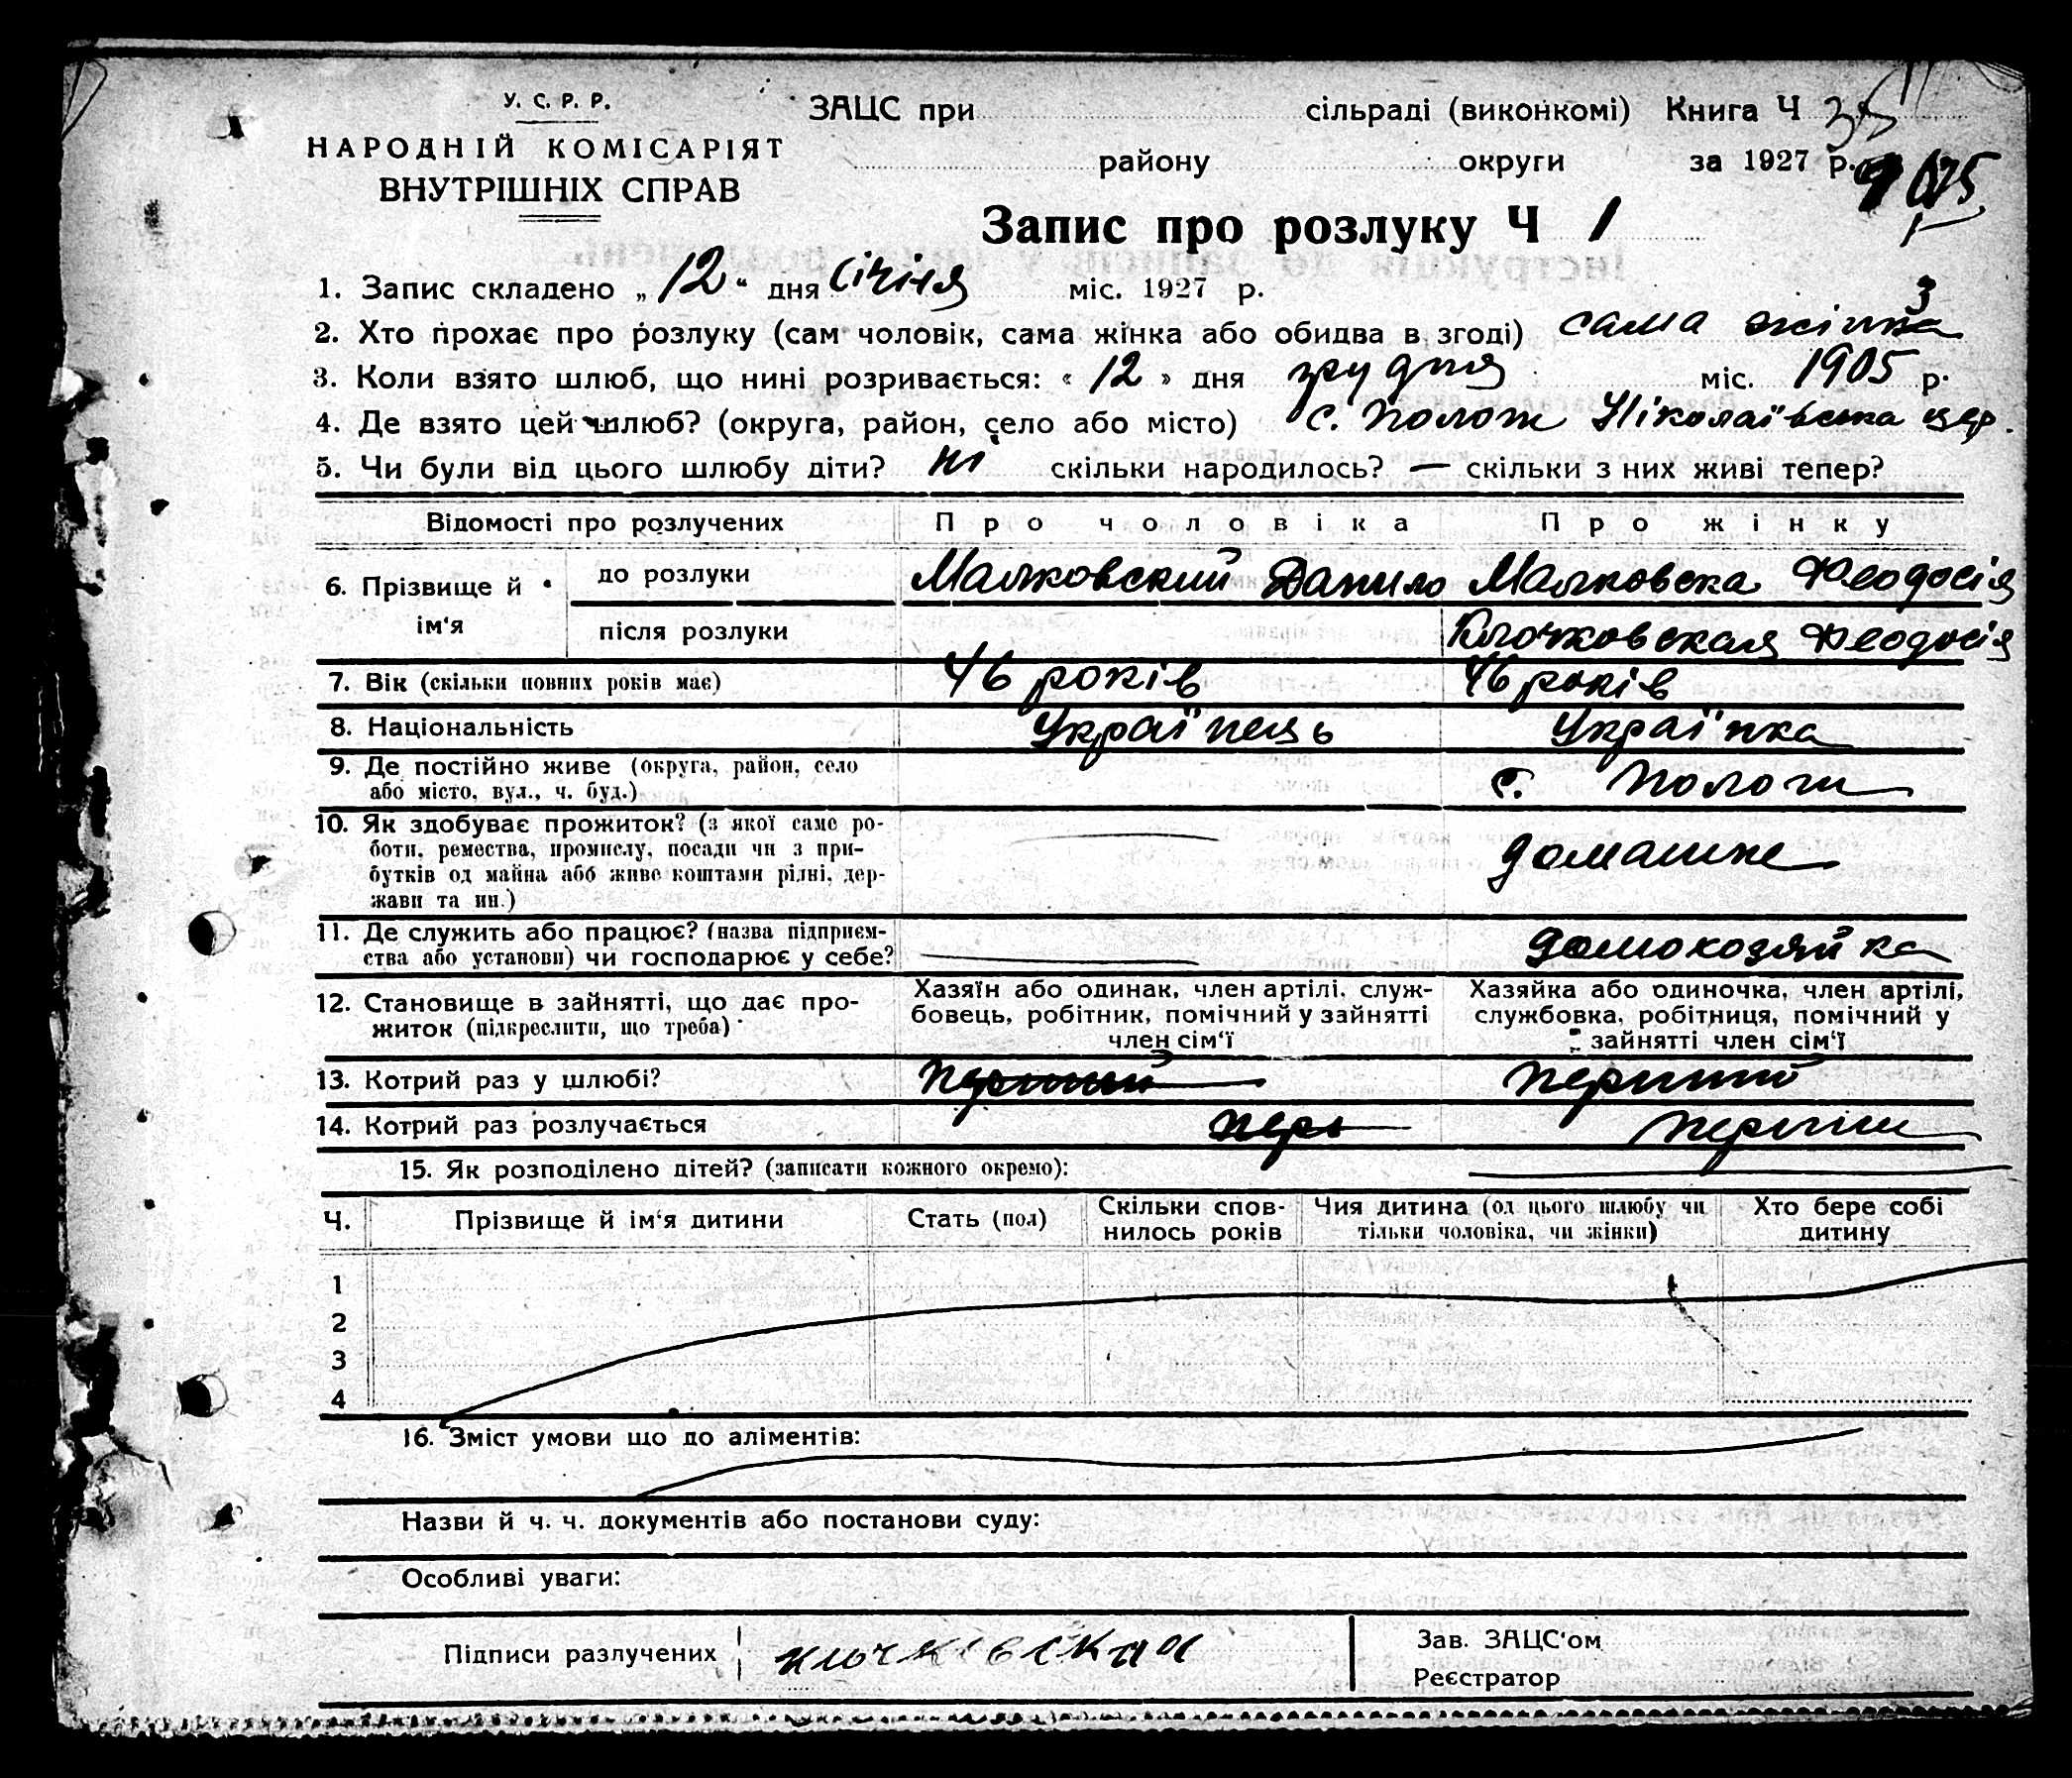 У. С. Р. Р.
НАРОДНІЙ КОМІСАРІЯТ
ВНУТРІШНІХ СПРАВ
ЗАЦС при сільраді (виконкомі) Книга Ч
району округи за 1927 р.
Запис про розлуку Ч 1
1. Запис складено „ 12 “ дня січіня міс. 1927 р.
2. Хто прохає про розлуку (сам чоловік, сама жінка або обидва в згоді) сама жінка
3
3. Коли взято шлюб, що нині розривається: « 12 » дня грудня міс. 1905 р.
4. Де взято цей шлюб? (округа, район, село або місто) с. Пологи Ніколаївська цер.
5. Чи були від цього шлюбу діти? ні скільки народилось? — скільки з них живі тепер?
Відомості про розлучених Про чоловіка Про жінку
6. Прізвище й ім‘я до розлуки Малковский Данило Малковска Феодосія
після розлуки Клочковская Феодосія
7. Вік (скільки повних років має) 46 років 46 років
8. Національність Українець Українка
9. Де постійно живе (округа, район, село
або місто, вул., ч. буд.) с. Пологи
10. Як здобуває прожиток? (з якої саме ро-
боти, ремества, промислу, посади чи з при-
бутків од майна або живе коштами рідні, дер-
жави та ин.) домашне
11. Де служить або працює? (назва підприєм-
ства або установи) чи господарює у себе? домохозяйка
12. Становище в зайнятті, що дає про-
житок (підкреслити, що треба)
Хазяїн або одинак, член артілі, служ-
бовець, робітник, помічний у зайнятті
член сім‘ї
Хазяйка або одиночка, член артілі,
службовка, робітниця, помічний у
зайнятті член сім‘ї
13. Котрий раз у шлюбі? перший
14. Котрий раз розлучається перь
15. Як розподілено дітей? (записати кожного окремо):
Ч. Прізвище й ім‘я дитини Стать (пол) Скільки спов-
нилось років Чия дитина (од цього шлюбу чи
тільки чоловіка, чи жінки) Хто бере собі
дитину
1
2
3
4
16. Зміст умови що до аліментів:
Назви й ч. ч. документів або постанови суду:
Особливі уваги:
Підписи разлучених Клочковская
Зав. ЗАЦС‘ом
Реєстратор